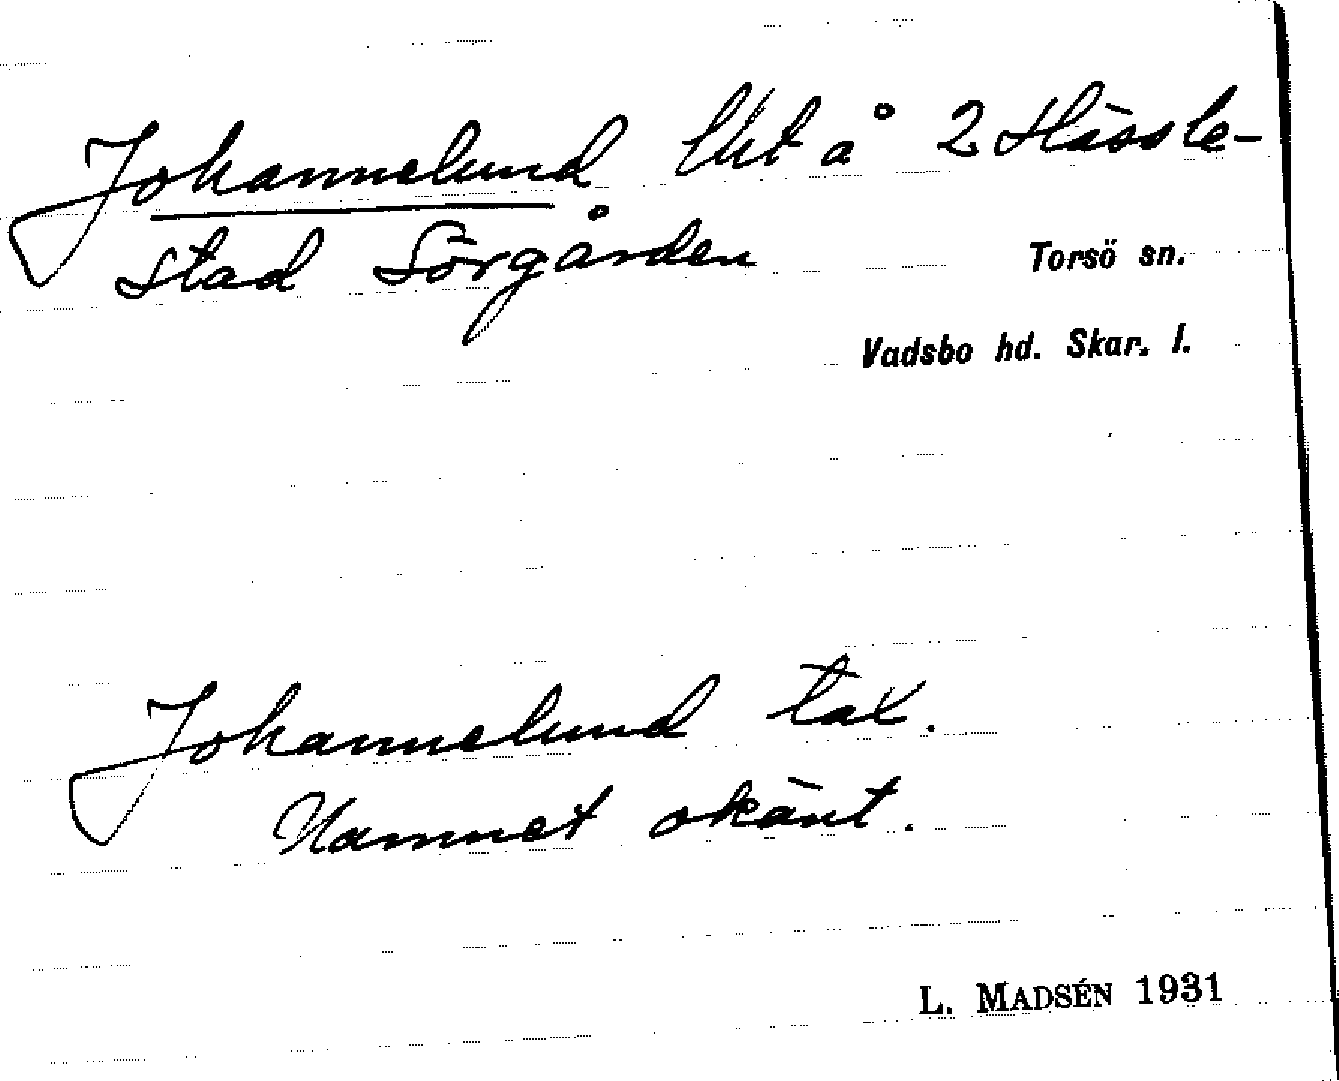 Johannelund lht å 2 Hässle-
stad Sörgården
Torsö sn.
Vadsbo hd. Skar. l.
Johannelund tax.
Namnet okänt.
L. MADSÉN 1931